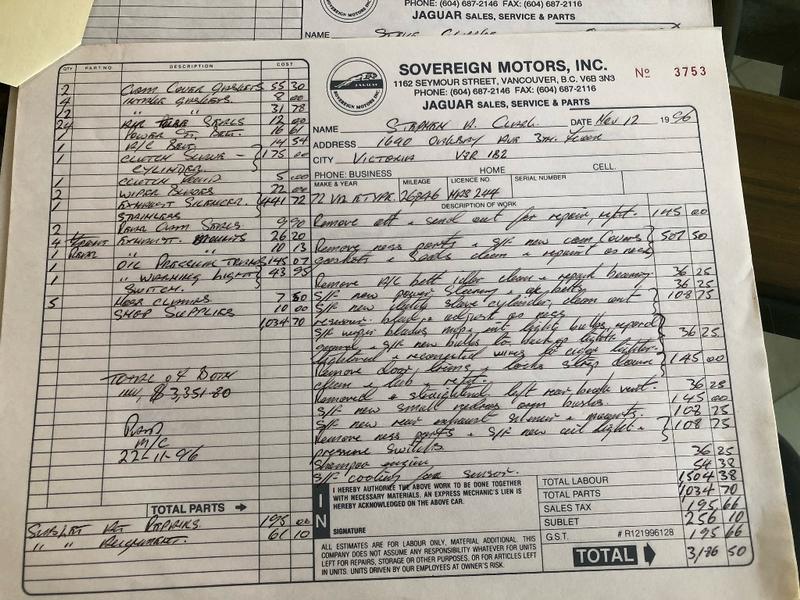 PHONE: (604) 687-2146 FAX: (604) 687-2116
JAGUAR SALES, SERVICE & PARTS
NAME
SOVEREIGN MOTORS, INC.
1162 SEYMOUR STREET, VANCOUVER, B.C. V6B 3N3
PHONE: (604) 687-2146 FAX: (604) 687-2116
JAGUAR SALES, SERVICE & PARTS
No 3753
SOVEREIGN MOTORS INC.
JAGUAR
NAME Stephen A. Clark DATE Nov 12 1996
ADDRESS 1640 Oak Bay Ave 3rd. Floor
CITY Victoria V8R 1B2
PHONE: BUSINESS HOME CELL.
MAKE & YEAR MILEAGE LICENCE NO. SERIAL NUMBER
72 V12 E TYPE 26846 244
DESCRIPTION OF WORK
QTY PART NO. DESCRIPTION COST
2 Cam Cover Gaskets 55 30
4 Intake Gaskets 8 00
2 " " 31 78
24 Seals 12 00
1 Power St. Belt. 16 61
1 A/C Belt 14 54
1 Clutch Slave - 175 00
Cylinder.
1 Clutch Fluid 5 00
2 Wiper Blades 22 00
1 Exhaust Silencer 441 72
Stainless
2 Rear Cam Seals 9 90
4 Front Exhaust. Mounts 26 20
1 Rear " " 10 13
1 Oil Pressure Trans 145 07
1 " Warning Light 43 95
Switch.
5 Hose Clamps 7 50
Shop Supplies 10 00
1034 70
Total of Both
Inv. $3,351-80
Paid
M/C
22-11-96
TOTAL PARTS
Sublet Repairs 195 00
" " 61 10
Remove + send out for repair refit. 145 00
Remove ness parts + S/F new cam covers 507 50
gaskets + seals clean + repaint as ness
Remove A/C belt idler clean + repair bearing 36 25
S/F new power steering + a/c belts 36 25
S/F new clutch slave cylinder, clean out 108 75
reservoir bleed + adjust as ness
S/F wiper blades 36 25
S/F new bulbs to back up lights
+ reconnected wires to cigar lighter.
Remove door trims + locks strip down 145 00
clean + lub + refit.
Removed + straightened left rear brake vent. 36 25
S/F new small radius arm bushes. 145 00
S/F new rear exhaust silencer + mounts. 108 75
Remove ness parts + S/F new oil light + 108 75
pressure switches
Shampoo engine 36 25
S/F cooling fan sensor. 54 38
I HEREBY AUTHORIZE THE ABOVE WORK TO BE DONE TOGETHER
WITH NECESSARY MATERIALS. AN EXPRESS MECHANIC'S LIEN IS
HEREBY ACKNOWLEDGED ON THE ABOVE CAR.
SIGNATURE
ALL ESTIMATES ARE FOR LABOUR ONLY, MATERIAL ADDITIONAL. THIS
COMPANY DOES NOT ASSUME ANY RESPONSIBILITY WHATEVER FOR UNITS
LEFT FOR REPAIRS, STORAGE OR OTHER PURPOSES, OR FOR ARTICLES LEFT
IN UNITS. UNITS DRIVEN BY OUR EMPLOYEES AT OWNER'S RISK.
IN
TOTAL LABOUR 1504 38
TOTAL PARTS 1034 70
SALES TAX 195 66
SUBLET 256 10
G.S.T. # R121996128 195 66
TOTAL 3186 50